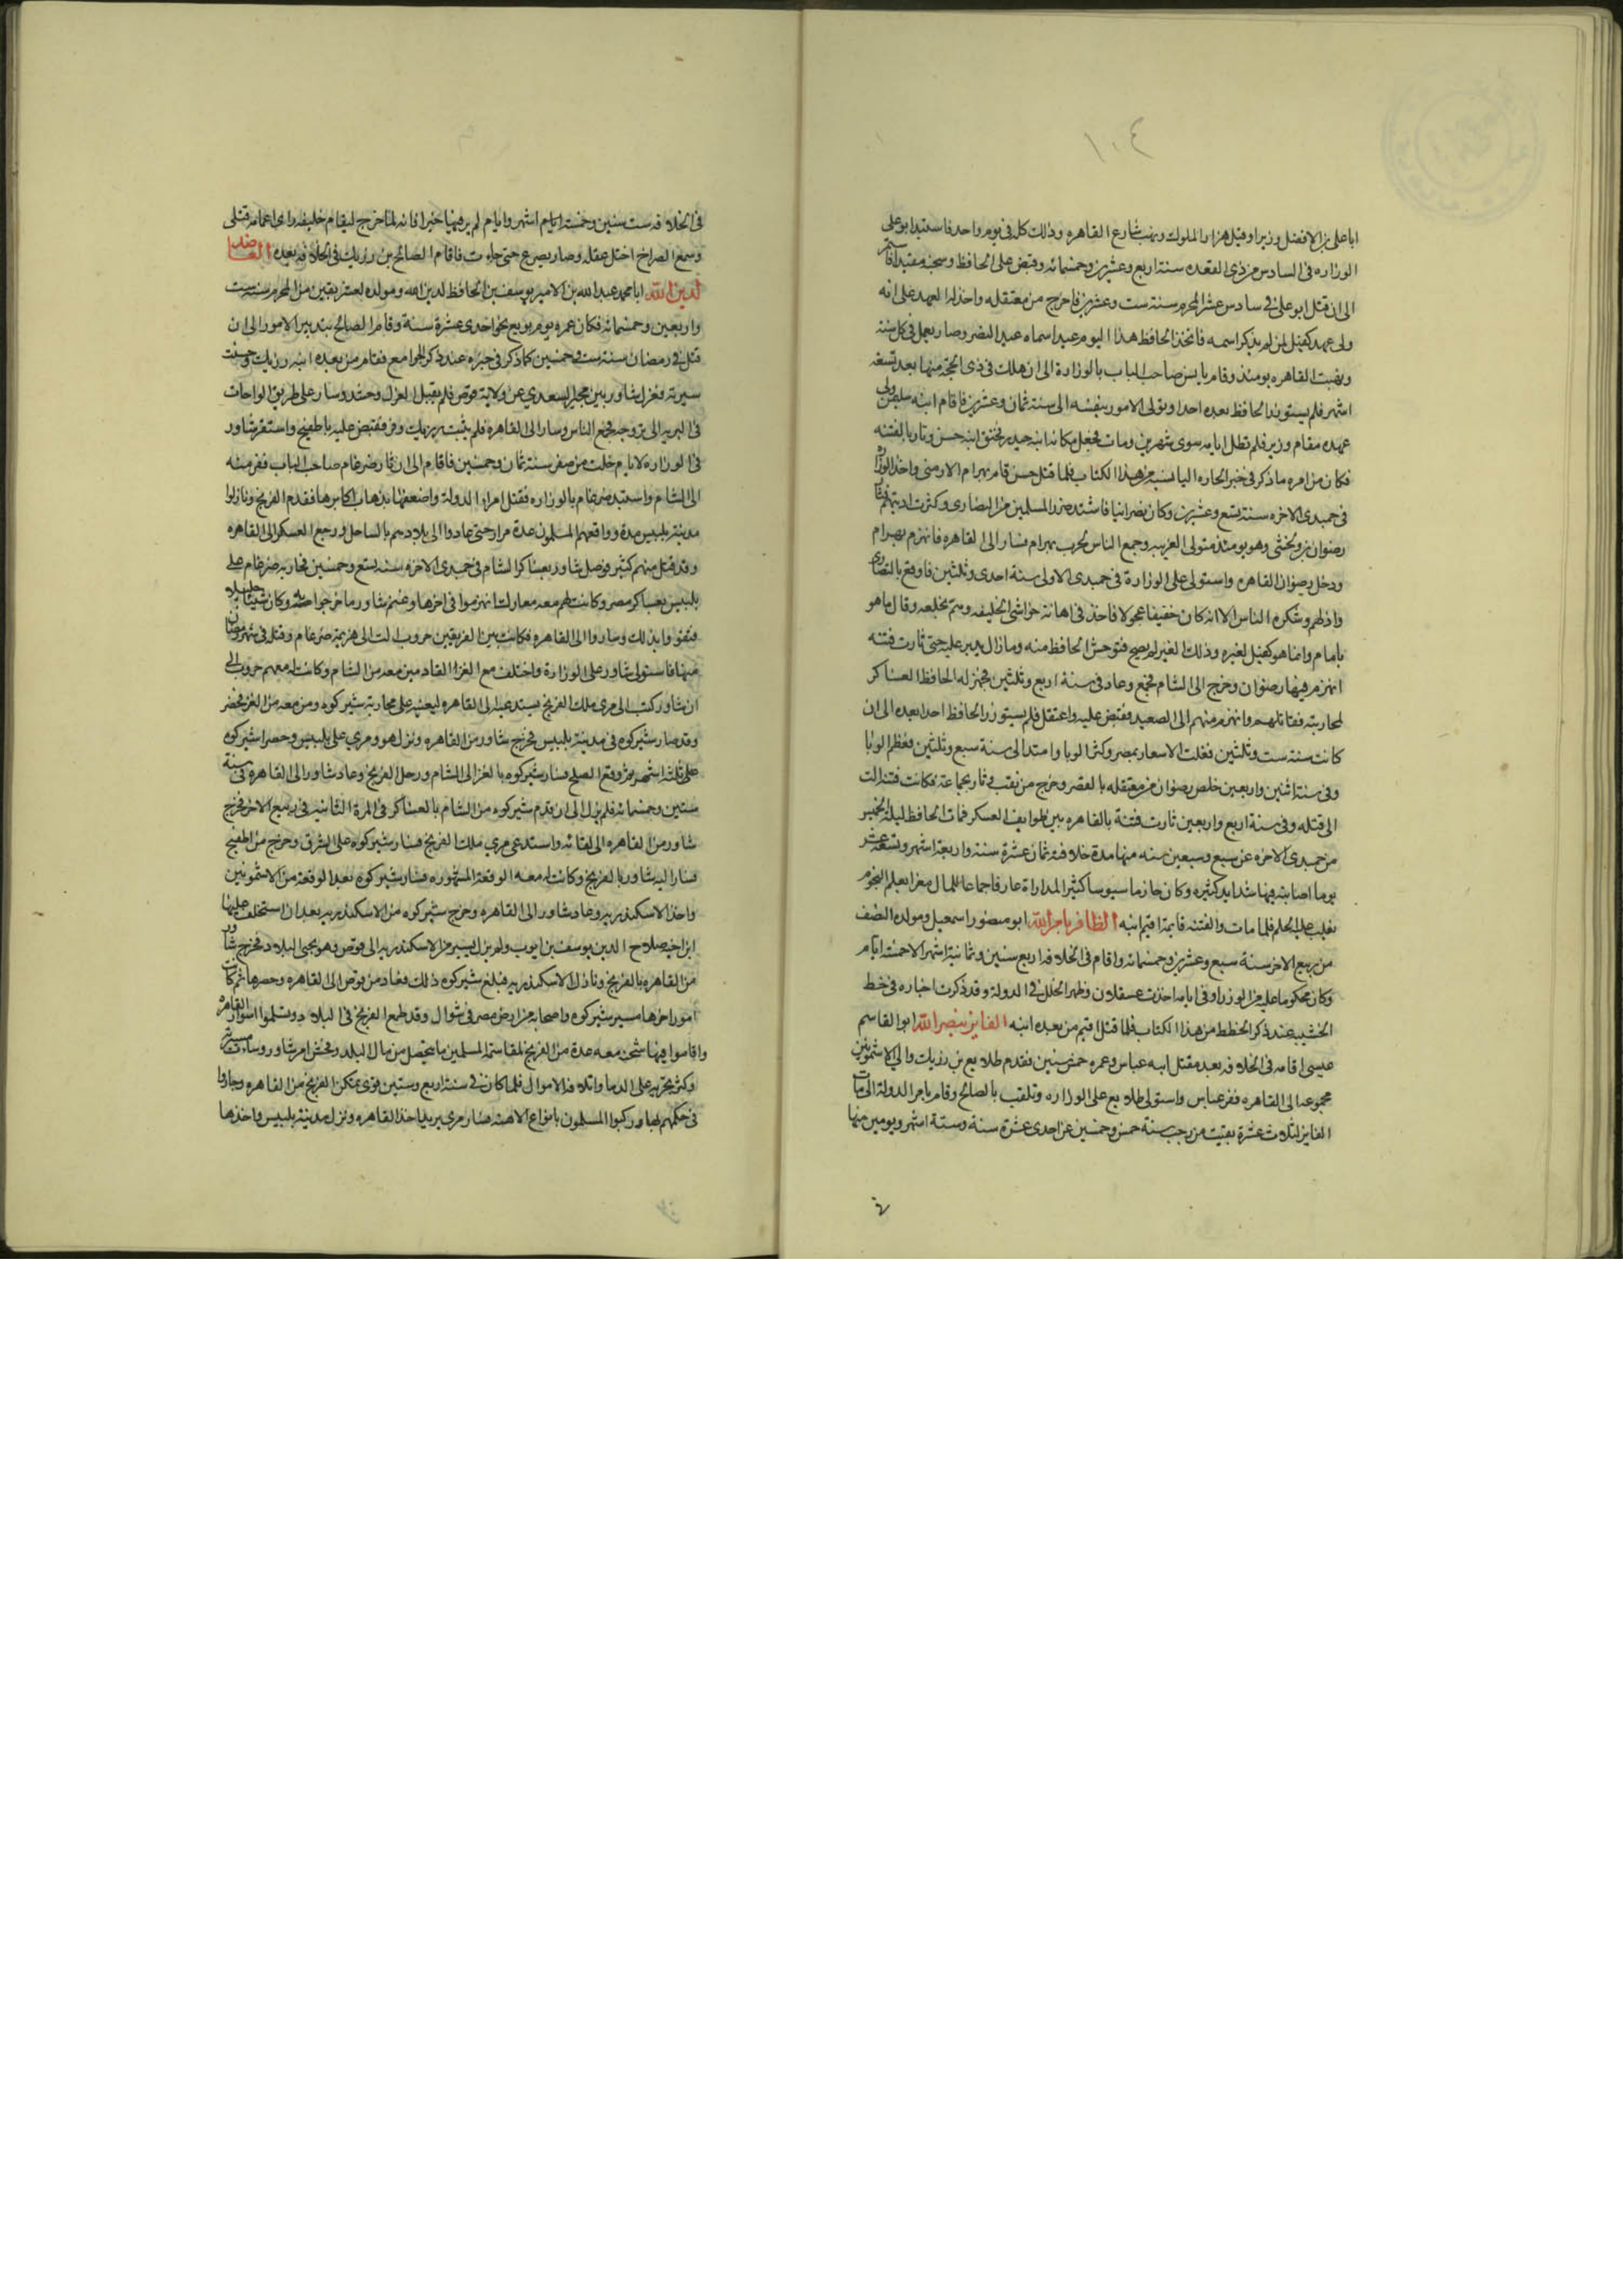 ١٠٤
ابا على بن الافضل وزيرا وقيل هزار الملوك ونهب شارع القاهره وذلك كله فى يوم واحد فاستبد ابو على
الوزاره فى السادس من ذى القعده سنة اربع وعشرين وخمسمائه وقبض على الحافظ وسجنه مقيدا فاستمر
الى ان قتل ابو على فى سادس عشر المحرم سنة ست وعشرين فاخرج من معتقله واخذ له العهد على انه
ولى عهد كفيل لمن لم يذكر اسمه فاتخذ الحافظ هذا اليوم عيدا سماه عيد النصر وصار يعمل فى كل سنة
ونهبت القاهره يومئذ وقام يانس صاحب الباب بالوزارة الى ان هلك فى ذى الحجة منها بعد تسعة
اشهر فلم يستوزر الحافظ بعده احدا وتولى الامور بنفسه الى سنة ثمان وعشرين فاقام ابنه سليمن ولى
عهده مقام وزير فلم تطل ايامه سوى شهرين ومات فجعل مكانه ابنه حيدره فحنق ابنه حسن وثار بالفتنه
فكان من امره ما ذكر فى خبر الحاره اليانسيه من هذا الكتاب فلما قتل حسن قام بهرام الارمنى واخذ الوزاره
فى جمدى الاخره سنة تسع وعشرين وكان نصرانيا فاشتد ضرر المسلمين من النصارى وكثرت اذيتهم فثار
رضوان بن ولخشى وهو يومئذ متولى الغربيه وجمع الناس لحرب بهرام فسار الى القاهره فانهزم بهرام
ودخل رضوان القاهره واستولى على الوزارة فى جمدى الاولى سنة احدى وثلثين فاوقع بالنصارى
واذلهم وشكره الناس الا انه كان خفيفا عجولا فاخذ فى اهانة حواشى الخليفه وهم بخلعه وقال ما هو
بامام وانما هو كفيل لغيره وذلك الغير لم يصح فتوحش الحافظ منه وما زال يدبر عليه حتى ثارت فتنه
انهزم فيها رضوان وخرج الى الشام فجمع وعاد فى سنة اربع وثلثين فجهز له الحافظ العساكر
لمحاربته فقاتلهم وانهزم منهم الى الصعيد فقبض عليه واعتقل فلم يستوزر الحافظ احدا بعده الى ان
كانت سنة ست وثلثين فغلت الاسعار بمصر وكثر الوبا وامتد الى سنة سبع وثلثين فعظم الوبا
وفى سنة اثنين واربعين خلص رضوان من معتقله بالقصر وخرج من نقب وثار بجماعة فكانت فتنة الت
الى قتله وفى سنة اربع واربعين ثارت فتنة بالقاهره بين طوايف العسكر فمات الحافظ ليلة الخميس
من جمدى الاخره عن سبع وسبعين سنه منها مدة خلافته ثمان عشرة سنة واربعة اشهر وتسعة عشر
يوما اصابته فيها شدايد كثيره وكان حازما سيوسا كثير المداراة عارفا جماعا للمال مغرا بعلم النجوم
يغلب عليه الحلم فلما مات والفتنه قايمة اقيم ابنه الظافر بامر الله ابو منصور اسمعيل ومولده النصف
من ربيع الاخر سنة سبع وعشرين وخمسمائه واقام فى الخلافه اربع سنين وثمانية اشهر الا خمسة ايام
وكان محكوما عليه من الوزرا وفى ايامه اخذت عسقلان وظهر الخلل فى الدولة وقد ذكرت اخباره فى خط
الخشيبه عند ذكر الخطط من هذا الكتاب فلما قتل اقيم من بعده ابنه الفايز بنصر الله ابو القاسم
عيسى اقامه فى الخلافه بعد مقتل ابيه عباس وعمره خمس سنين فقدم طلايع بن رزيك والى الاشمونين
بجموعه الى القاهره ففر عباس واستولى طلايع على الوزاره وتلقب بالصالح وقام بامر الدولة الى مات
الفايز لثلاث عشرة بقيت من رجب سنة خمس وخمسين عن احدى عشرة سنة وستة اشهر ويومين منها
فى الخلافه ست سنين وخمسة ايام اشهر وايام لم ير فيها خيرا فانه لما خرج ليقام خليفه راى اعمامه قتلى
وسمع الصراخ اختل عقله وصار يصرع حتى مات فاقام الصالح بن رزيك فى الخلافه بعده العاضد
لدين الله ابا محمد عبد الله بن الامير يوسف بن الحافظ لدين الله ومولده لعشر بقين من المحرم سنة ست
واربعين وخمسمائه فكان عمره يوم بويع نحو احدى عشرة سنة وقام الصالح بتدبير الامور الى ان
قتل فى رمضان سنة ست وخمسين كما ذكر فى خبره عند ذكر الجوامع فقام من بعده ابنه رزيك وحسنت
سيرته فعزل شاور بن مجير السعدي عن ولاية قوص فلم يقبل العزل وحشد وسار على طريق الواحات
فى البريه الى تروجه فجمع الناس وسار الى القاهره فلم يثبت رزيك وفر فقبض عليه باطفيح واستقر شاور
فى الوزاره لايام خلت من صفر سنة ثمان وخمسين فاقام الى ان ثار ضرغام صاحب الباب ففر منه
الى الشام واستبد ضرغام بالوزاره فقتل امرا الدولة واضعفها بذهاب اكابرها فقدم الفرنج ونازلوا
مدينة بلبيس مدة وواقعهم المسلمون عدة مرار حتى عادوا الى بلادهم بالساحل ورجع العسكر الى القاهره
وقد قتل منهم كثير فوصل شاور بعساكر الشام فى جمدى الاخره سنة تسع وخمسين فحاربه ضرغام على
بلبيس بعساكر مصر وكانت لهم معه معارك انهزموا فى اخرها وغنم شاور ما خرجوا به وكان شيئا جليلا
فتقووا بذلك وساروا الى القاهره فكانت بين الفريقين حروب الت الى هزيمة ضرغام وقتله فى شهر رمضان
منها فاستولى شاور على الوزارة واختلف مع الغز القادمين معه من الشام وكانت له معهم حروب الى
ان شاور كتب الى مري ملك الفرنج يستدعيه الى القاهره ليعينه على محاربة شيركوه ومن معه من الغز فحضر
وقد صار شيركوه فى مدينة بلبيس فخرج شاور من القاهره ونزل هو ومري على بلبيس وحصرا شيركوه
على ثلثة اشهر ثم وقع الصلح فسار شيركوه بالغز الى الشام ورحل الفرنج وعاد شاور الى القاهرة فى سنة
ستين وخمسمائه فلم يزل الى ان قدم شيركوه من الشام بالعساكر فى المرة الثانيه فى ربيع الاخر فخرج
شاور من القاهره الى لقائه واستدعى مري ملك الفرنج فسار شيركوه على الشرق وخرج من اطفيح
فسار اليه شاور بالفرنج وكانت له معه الوقعة المشهوره فسار شيركوه بعد الوقعة من الاشمونين
واخذ الاسكندريه وعاد شاور الى القاهره وخرج شيركوه من الاسكندريه بعد ان استخلف عليها
ابن اخيه صلاح الدين يوسف بن ايوب ولم يزل يسير من الاسكندريه الى قوص وهو يجبى البلاد فخرج شاور
من القاهره بالفرنج ونازل الاسكندريه فبلغ شيركوه ذلك فعاد من قوص الى القاهره وحصرها ثم كانت
امور اخرها مسير شيركوه واصحابه من ارض مصر فى شوال وقد طمع الفرنج فى البلاد وتسلموا اسوار القاهره
واقاموا فيها شحنه معه عدة من الفرنج لمقاسمة المسلمين ما يتحصل من مال البلد وفحش امر شاور وساءت سيرته
وكثر تجريه على الدما واتلافه الاموال فلما كان فى سنة اربع وستين قوى تمكن الفرنج من القاهره وجاروا
فى حكمهم بها وركبوا المسلمون بانواع الاهنه فسار مري يريد اخذ القاهره ونزل مدينة بلبيس واخذها